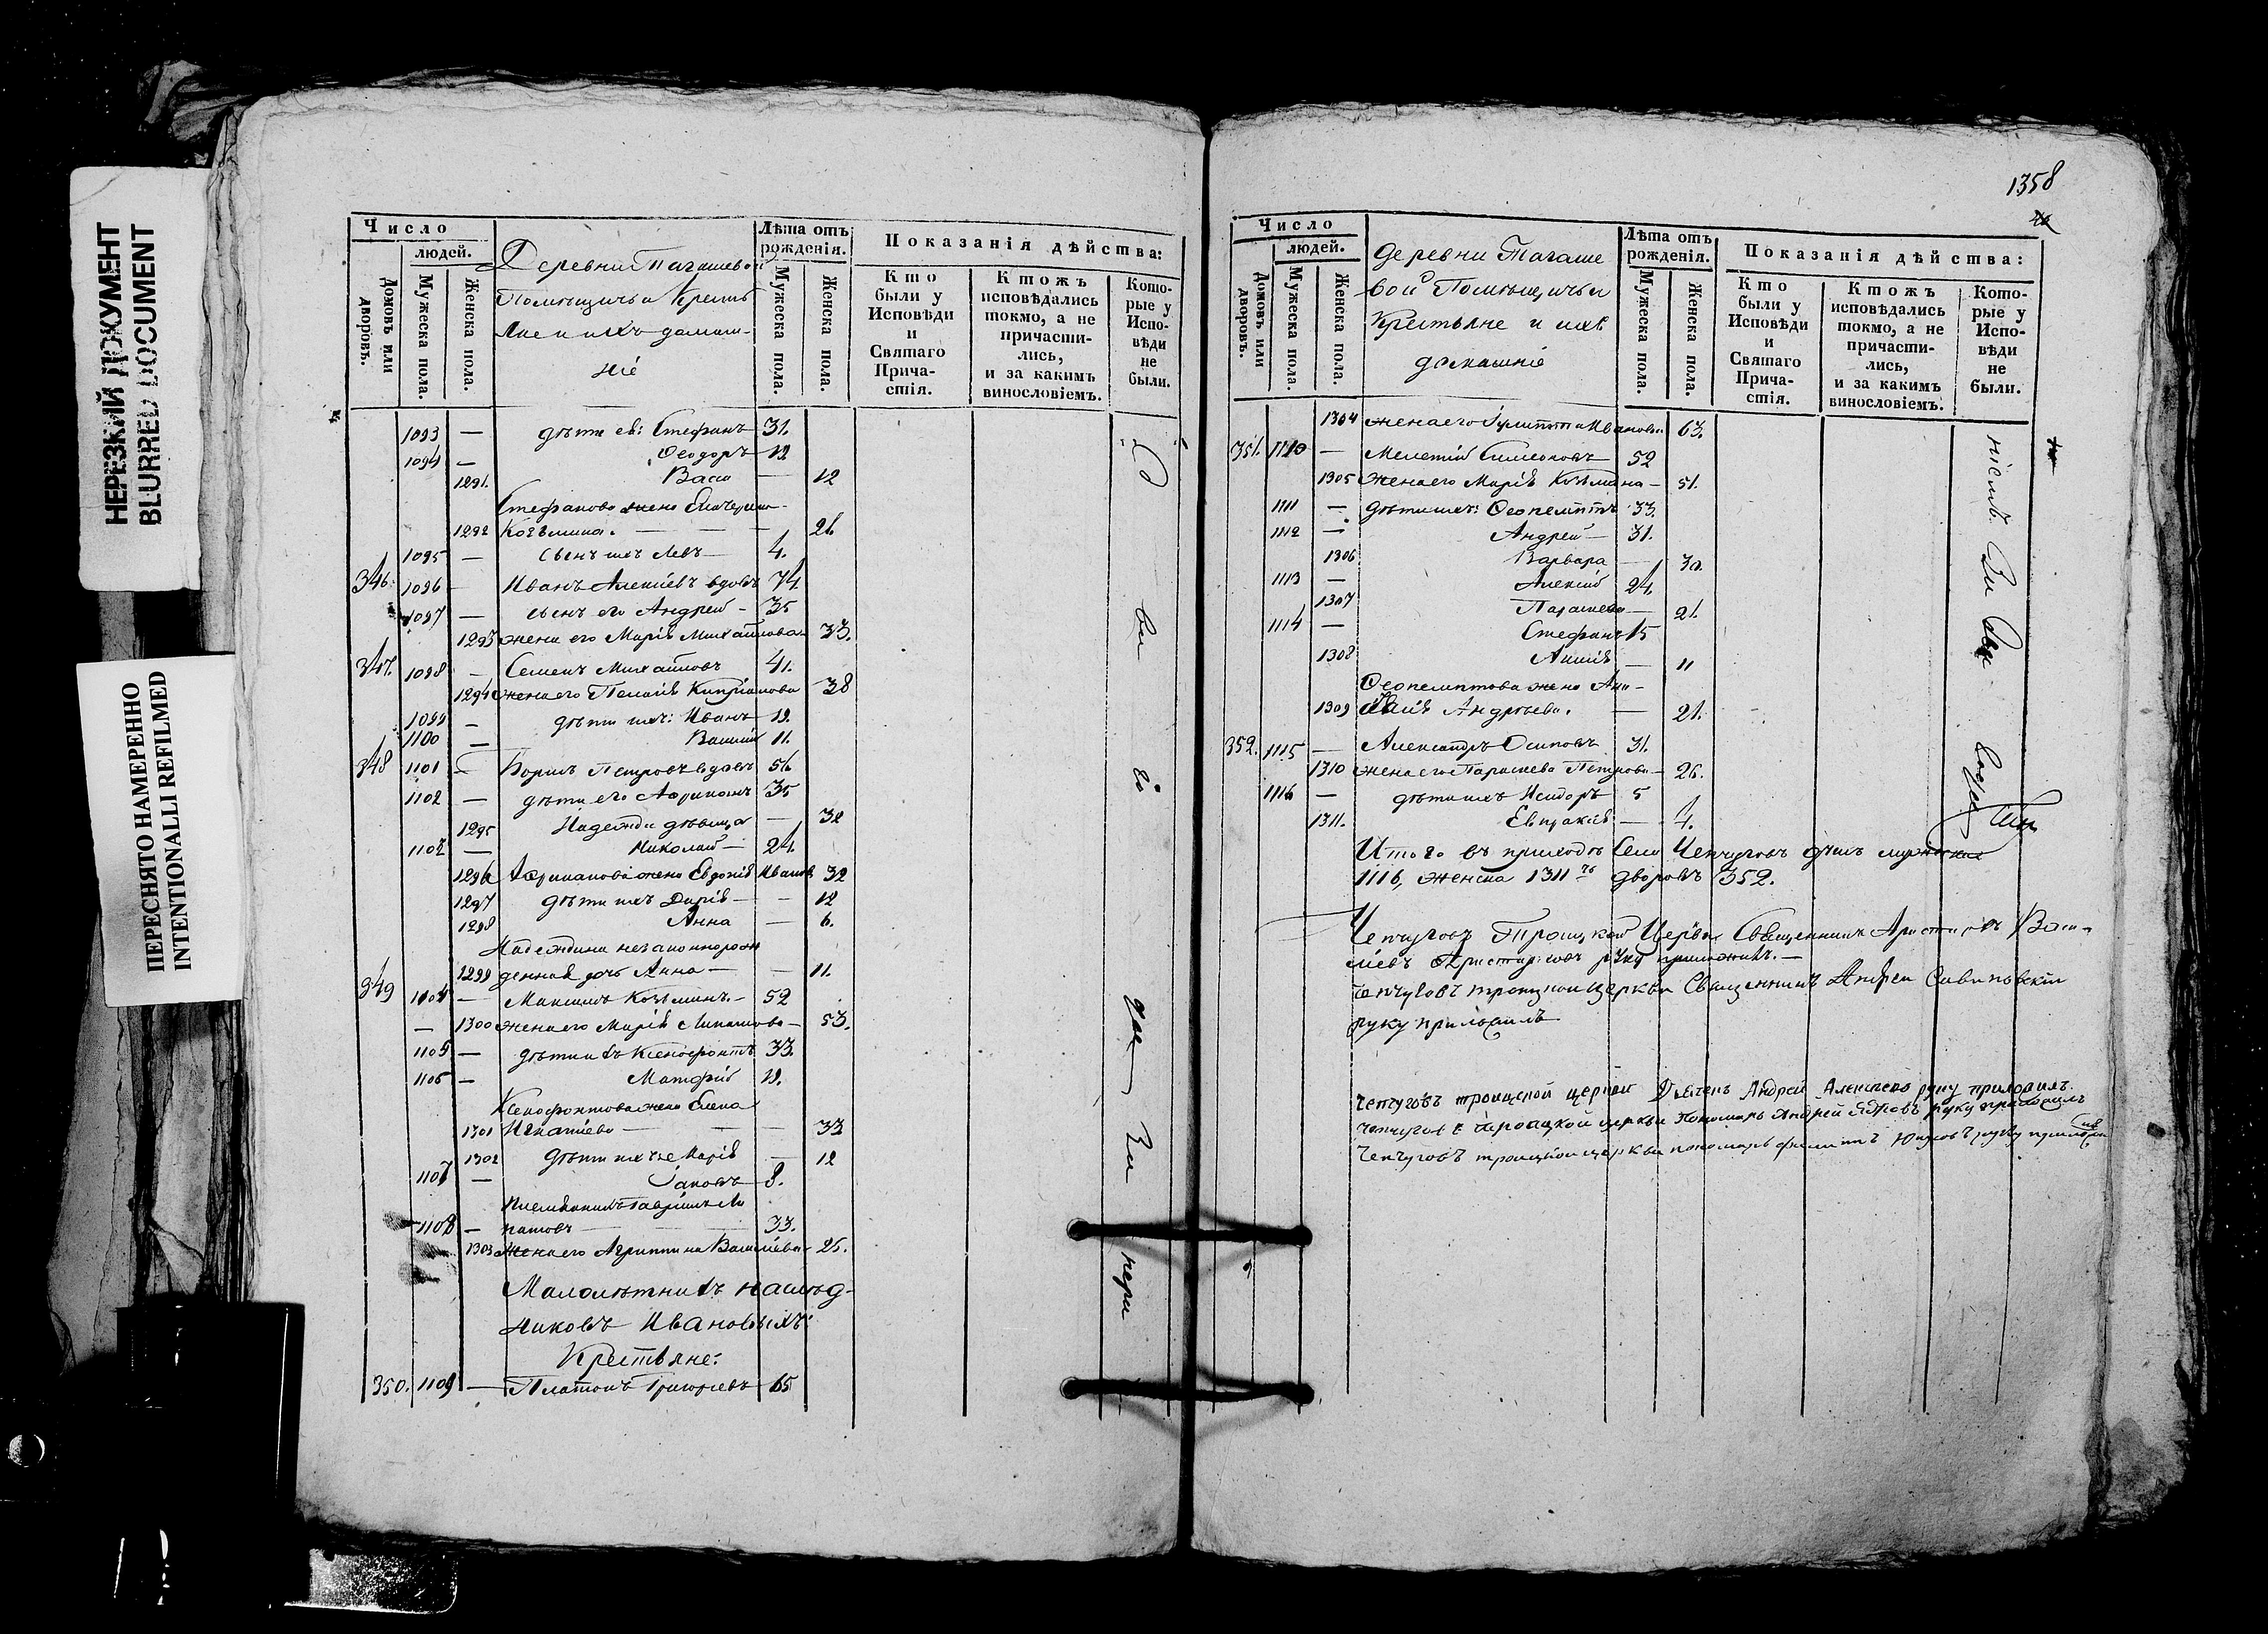 НЕРЕЗКИЙ ДОКУМЕНТ
BLURRED DOCUMENT
ПЕРЕСНЯТО НАМЕРЕННО
INTENTIONALLI REFILMED
Число
людей.
Домовъ или дворовъ.
Мужеска пола.
Женска пола.
Деревни Тагашевой
Помѣщичьи Кресть
яне и ихъ домаш-
ніе
Лѣта отъ рожденія.
Мужеска пола.
Женска пола.
Показанія дѣйства:
Кто были у Исповѣди и Святаго Причастія.
Ктожъ исповѣдались токмо, а не причастились, и за какимъ винословіемъ.
Которые у Исповѣди не были.
1093 — дѣти ев: Стефанъ 31.
1094 — Ѳеодоръ 19
1291. Васса — 12
Стефанова жена Екатерина
1292 Козьмина. — — — 26.
1095 — сынъ ихъ Левъ — 4.
346. 1096 — Иванъ Алексіевъ вдовъ 74.
1097 — сынъ его Андрей — 35
1293 жена его Марія Михайлова 33.
347. 1098 — Семенъ Михайловъ 41.
1294 жена его Пелагія Кипріянова 38
1099 — дѣти ихъ: Иванъ 19.
1100 — Василій 11.
348 1101 — Борисъ Петровъ вдовъ 56
1102 — дѣти его Африканъ 35
1295 Надежда дѣвица — 32
1103 — Николай — 24.
1296 Африканова жена Евдокія Иванов 32
1297 дѣти ихъ Дарія — — 12
1298 Анна — 6.
Надеждина незаконнорож
1299 денная дочь Анна — — 11.
349 1104 — Максимъ Козьминъ. — 52
— 1300 жена его Марія — 53.
1105 — дѣти ихъ Ксенофонтъ 33.
1106 — Матфій 19.
Ксенофонтова жена Елена
1301 Игнатіева — — — 33
1302 дѣти ихъ Марія — 12
1107 — Іаковъ — 8.
Племянникъ Гавріилъ Ли
1108 — патовъ — 33.
1303 жена его Агриппина Васильева — 25.
Малолѣтнихъ наслѣд-
никовъ Ивановыхъ
Крестьяне:
350. 1109 — Платонъ Григорьевъ 65
1358
Число
людей.
Домовъ или дворовъ.
Мужеска пола.
Женска пола.
деревни Тагаше
вой Помѣщичьи
Крестьяне и ихъ
домашніе
Лѣта отъ рожденія.
Мужеска пола.
Женска пола.
Показанія дѣйства:
Кто были у Исповѣди и Святаго Причастія.
Ктожъ исповѣдались токмо, а не причастились, и за какимъ винословіемъ.
Которые у Исповѣди не были.
1304 жена его Іулитта Иванова 63.
351. 1110 — Мелетій Симеоновъ 52
1305 жена его Марія Козьмина — 51.
1111 — дѣти ихъ: Ѳеопемптъ 33.
1112 — Андрей — 31.
1306 Варвара — 30.
1113 — Алексій 24.
1307 Параскева — 21.
1114 — Стефанъ 15
1308 — 11
Ѳеопемптова жена
1309 Андреева. — 21.
352. 1115 — Александръ Осиповъ 31.
1310 жена его Параскева Петрова — 26.
1116 — дѣти ихъ Исидоръ 5
1311. Евпраксія — 4.
Итого въ приходѣ Села Чепчуговъ душъ мужеска
1116, женска 1311 дворовъ 352.
Чепчуговъ Троицкой Церкви Священникъ Аристархъ Васи-
ліевъ Аристарховъ руку приложилъ. —
Чепчуговъ троицкой церкви Священникъ Андрей
руку приложилъ
Чепчуговъ троицкой церкви Андрей Алексеевъ руку приложилъ.
Чепчуговъ троицкой церкви Пономарь Андрей руку приложилъ
Чепчуговъ троицкой церкви пономарь руку приложилъ